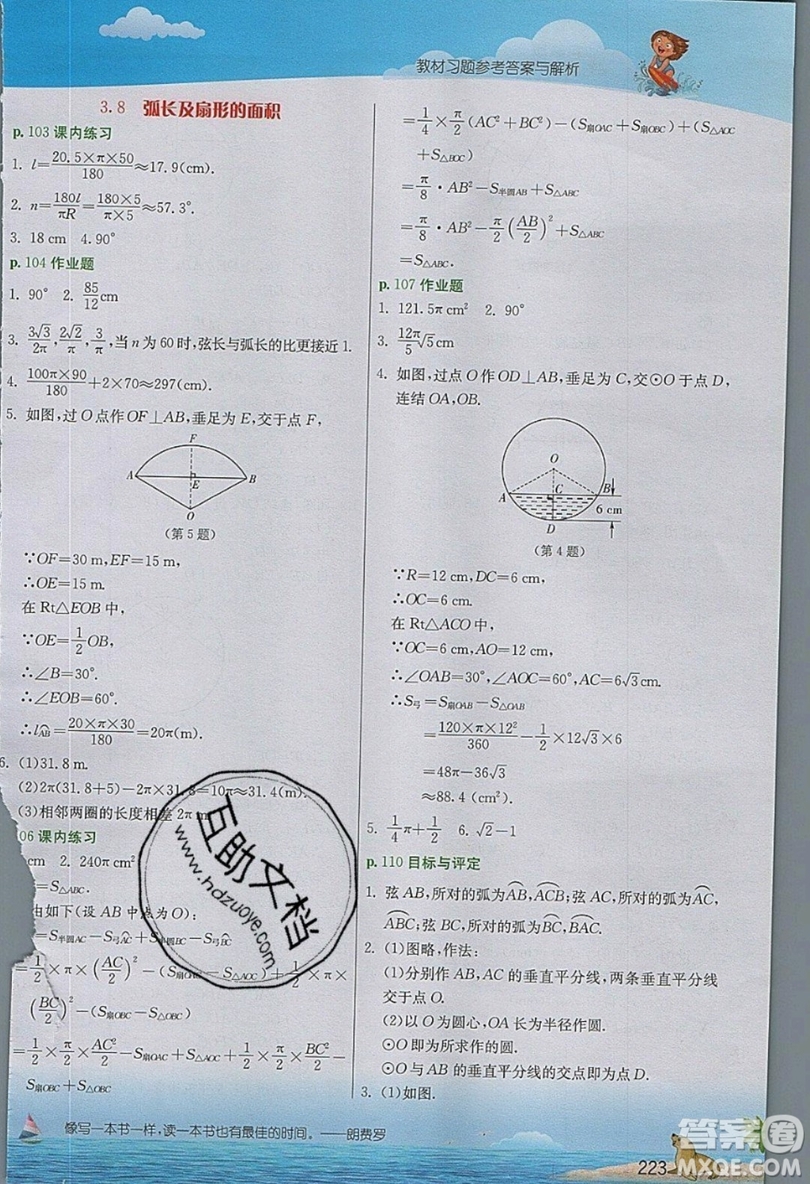 教材习题参考答案与解析
3.8 弧长及扇形的面积
p.103 课内练习
1. l=\frac{20.5×π×50}{180}≈17.9(cm).
2. n=\frac{180l}{πR}=\frac{180×5}{π×5}≈57.3°.
3. 18 cm 4. 90°
p.104 作业题
1. 90° 2. \frac{85}{12}cm
3. \frac{3\sqrt{3}}{2π},\frac{2\sqrt{2}}{π},\frac{3}{π},当 n 为 60 时,弦长与弧长的比更接近 1.
4. \frac{100π×90}{180}+2×70≈297(cm).
5. 如图,过 O 点作 OF⊥AB,垂足为 E,交于点 F,
F
A
E
B
O
(第 5 题)
∵OF=30 m,EF=15 m,
∴OE=15 m.
在 Rt△EOB 中,
∵OE=\frac{1}{2}OB,
∴∠B=30°.
∴∠EOB=60°.
∴l_{\overset{\frown}{AB}}=\frac{20×π×30}{180}=20π(m).
6. (1)31.8 m.
(2)2π(31.8+5)-2π×31.8=10π≈31.4(m).
(3)相邻两圈的长度相差 2π m
06 课内练习
cm 2. 240π cm²
=S_{△ABC}.
由如下(设 AB 中点为 O):
=S_{半圆AC}-S_{弓\overset{\frown}{AC}}+S_{半圆BC}-S_{弓\overset{\frown}{BC}}
=\frac{1}{2}×π×(\frac{AC}{2})²-(S_{扇OAC}-S_{△OAC})+\frac{1}{2}×π×
(\frac{BC}{2})²-(S_{扇OBC}-S_{△OBC})
=\frac{1}{2}×\frac{π}{2}×\frac{AC²}{2}-S_{扇OAC}+S_{△OAC}+\frac{1}{2}×\frac{π}{2}×\frac{BC²}{2}-
S_{扇OBC}+S_{△OBC}
=\frac{1}{4}×\frac{π}{2}(AC²+BC²)-(S_{扇OAC}+S_{扇OBC})+(S_{△AOC}
+S_{△BOC})
=\frac{π}{8}·AB²-S_{半圆AB}+S_{△ABC}
=\frac{π}{8}·AB²-\frac{π}{2}(\frac{AB}{2})²+S_{△ABC}
=S_{△ABC}.
p.107 作业题
1. 121.5π cm² 2. 90°
3. \frac{12π}{5}\sqrt{5}cm
4. 如图,过点 O 作 OD⊥AB,垂足为 C,交⊙O 于点 D,
连结 OA,OB.
O
A
C
B
6 cm
D
(第 4 题)
∵R=12 cm,DC=6 cm,
∴OC=6 cm.
在 Rt△ACO 中,
∵OC=6 cm,AO=12 cm,
∴∠OAB=30°,∠AOC=60°,AC=6\sqrt{3}cm.
∴S_{弓}=S_{扇OAB}-S_{△OAB}
=\frac{120×π×12²}{360}-\frac{1}{2}×12\sqrt{3}×6
=48π-36\sqrt{3}
≈88.4(cm²).
5. \frac{1}{4}π+\frac{1}{2} 6. \sqrt{2}-1
p.110 目标与评定
1. 弦 AB,所对的弧为\overset{\frown}{AB},\overset{\frown}{ACB};弦 AC,所对的弧为\overset{\frown}{AC},
\overset{\frown}{ABC};弦 BC,所对的弧为\overset{\frown}{BC},\overset{\frown}{BAC}.
2. (1)图略,作法:
(1)分别作 AB,AC 的垂直平分线,两条垂直平分线
交于点 O.
(2)以 O 为圆心,OA 长为半径作圆.
⊙O 即为所求作的圆.
⊙O 与 AB 的垂直平分线的交点即为所求.
3. (1)如图.
互助文档
www.hdzuoye.com
像写一本书一样,读一本书也有最佳的时间。——朗费罗
223
答案圈
MXQE.COM